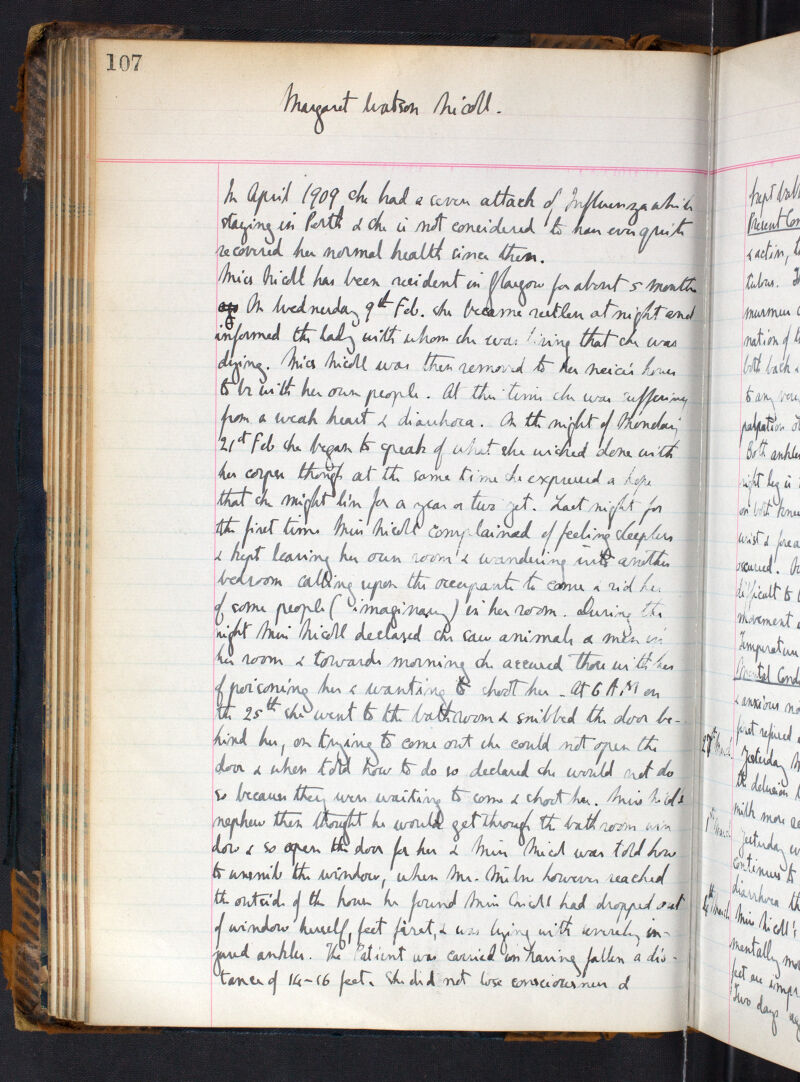 107
Margaret Watson Nicoll.
In April 1909 she had a severe attack of Influenza while
staying in Perth & she is not considered to have ever quite
recovered her normal health since then.
Miss Nicoll has been resident in Glasgow for about 5 months
On Wednesday 9th Feb. she became restless at night and
informed the lady with whom she was living that she was
dying. Miss Nicoll was then removed to her neice's house
to be with her own people. At this time she was suffering
from a weak heart & diarrhoea. On the night of Monday
21st Feb she began to speak of what she wished done with
her corpse though at the same time she expressed a hope
that she might live for a year or two yet. Last night for
the first time Miss Nicoll complained of feeling sleepless
& kept leaving her own room & wandering into another
bedroom calling upon the occupants to come & rid her
of some people (imaginary) in her room. During the
night Miss Nicoll declared she saw animals & men in
her room & towards morning she accused those with her
of poisoning her & wanting to shoot her. At 6 A.M on
the 25th she went to the bathroom & snibbed the door be-
hind her, on trying to come out she could not open the
door & when told how to do so declared she would not do
so because they were waiting to come & shoot her. Miss Nicoll's
nephew then thought he would get through the bathroom win
dow & so open the door for her & Miss Nicoll was told how
to unsnib the window, when Mr. Milne however reached
the outside of the house he found Miss Nicoll had dropped out
of window herself, feet first, & was lying with severely in-
jured ankles. The Patient was carried in having fallen a dis-
tance of 14-16 feet. She did not lose consciousness &
Present Con
& action, t
tubes.
murmur
nation of
both back &
to any very
palpation
Both ankles
right leg is
on both knee
wrist &
occurred.
difficult to
movement
Temperature
Mental Cond
& anxious
first refused
27th March. Yesterday
the delusion
milk more
1st March Yesterday
continues to
diarrhoea th
4th March Miss Nicoll's
mentally mo
feet are impr
Two days